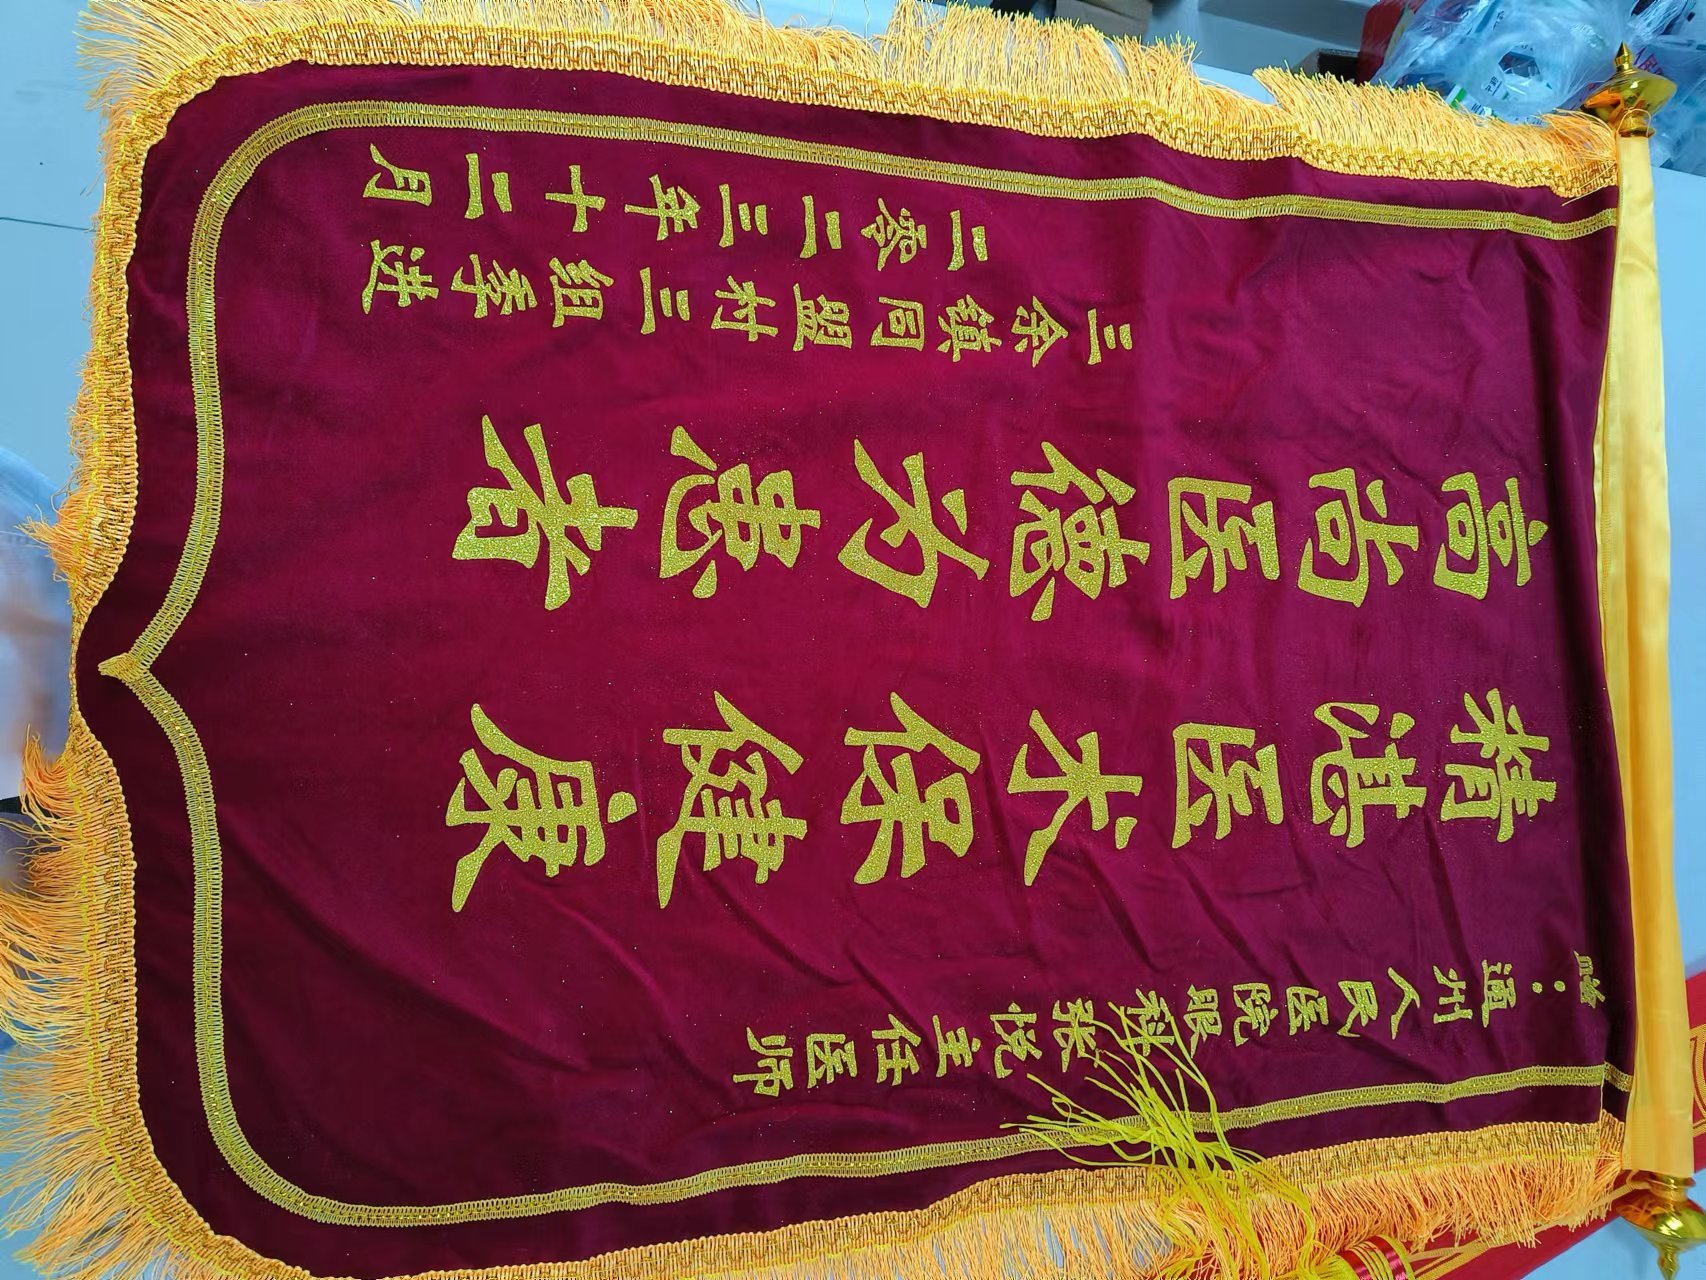 赠：通州人民医院眼科张悦主任医师
精湛医术保健康
高尚医德为患者
三余镇同盟村三组季进
二零二三年十二月